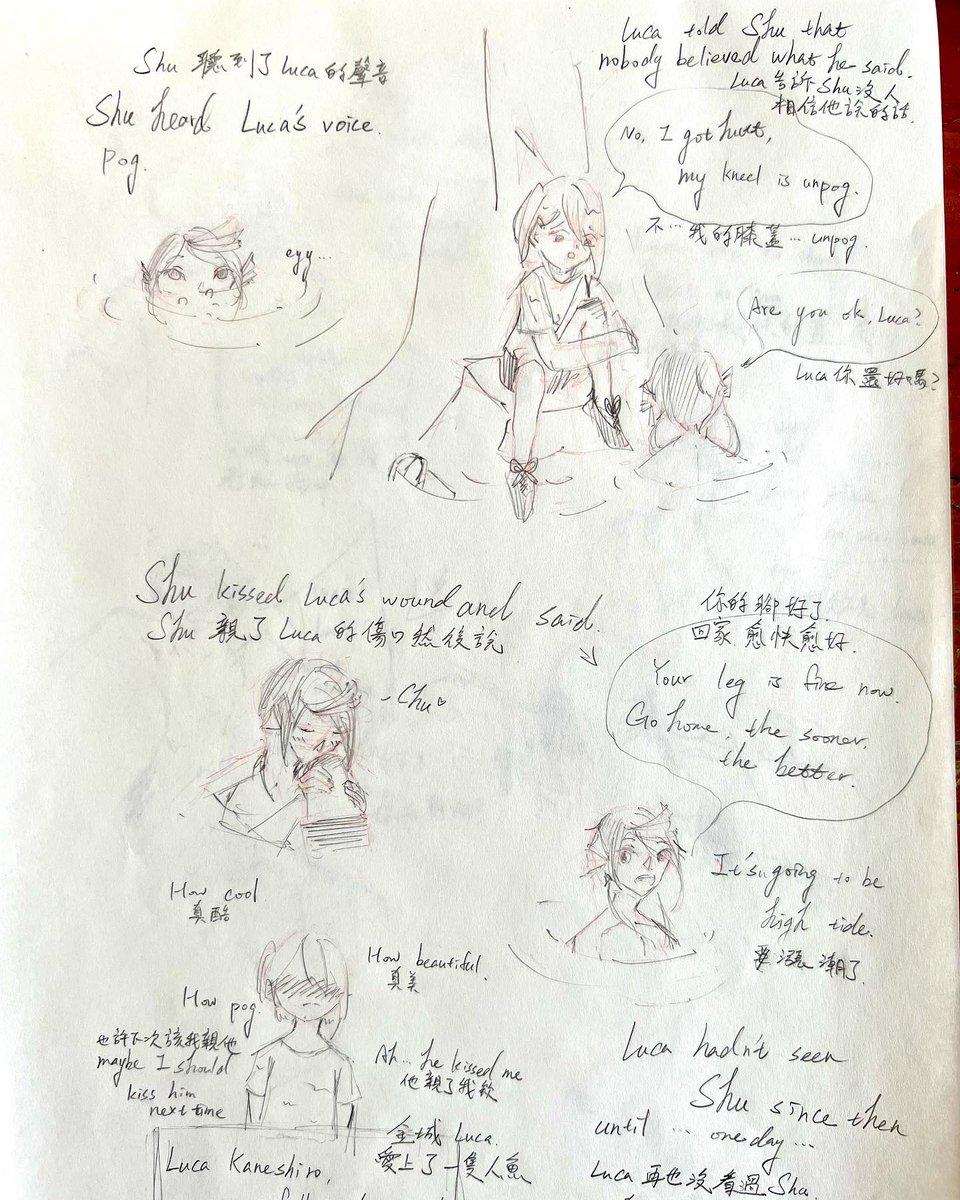 Shu 聽到了Luca的聲音
Shu heard Luca's voice.
pog.
eyy...
Luca told Shu that
nobody believed what he said.
Luca告訴Shu沒人
相信他說的話.
No, I got hurt,
my kneel is unpog.
不…我的膝蓋…unpog.
Are you ok, Luca?
Luca你還好嗎?
Shu kissed Luca's wound and said.
Shu 親了Luca的傷口然後說
-Chu♡
你的腳好了
回家 愈快愈好.
Your leg is fine now.
Go home, the sooner.
the better.
It's going to be
high tide.
要漲潮了
How cool
真酷
How beautiful.
真美
How pog.
也許下次該我親他
maybe I should
kiss him
next time
Ah... he kissed me
他親了我欸
金城 Luca.
愛上了一隻人魚
Luca Kaneshiro,
Luca hadn't seen
Shu since then
until ... one day ...
Luca 再也沒看過Shu